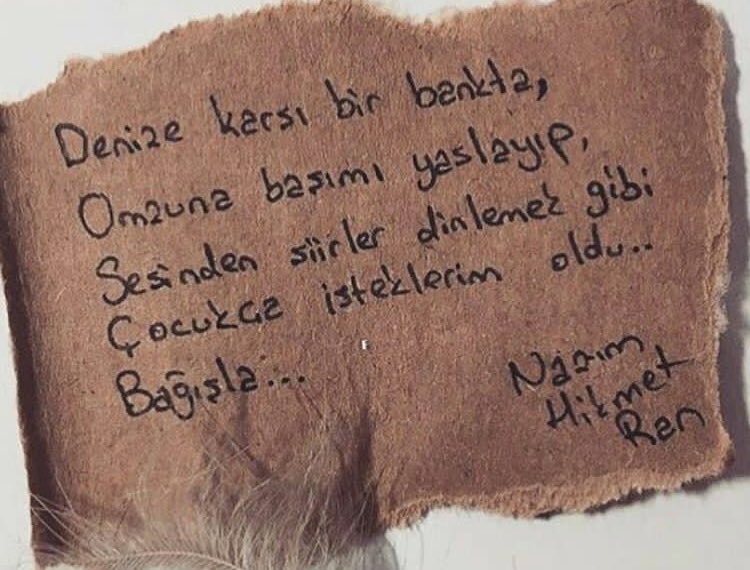 Denize karsı bir bankta,
Omzuna basımı yaslayıp,
Sesinden siirler dinlemek gibi
Çocukça isteklerim oldu..
Bağışla...
Nazım
Hikmet
Ran